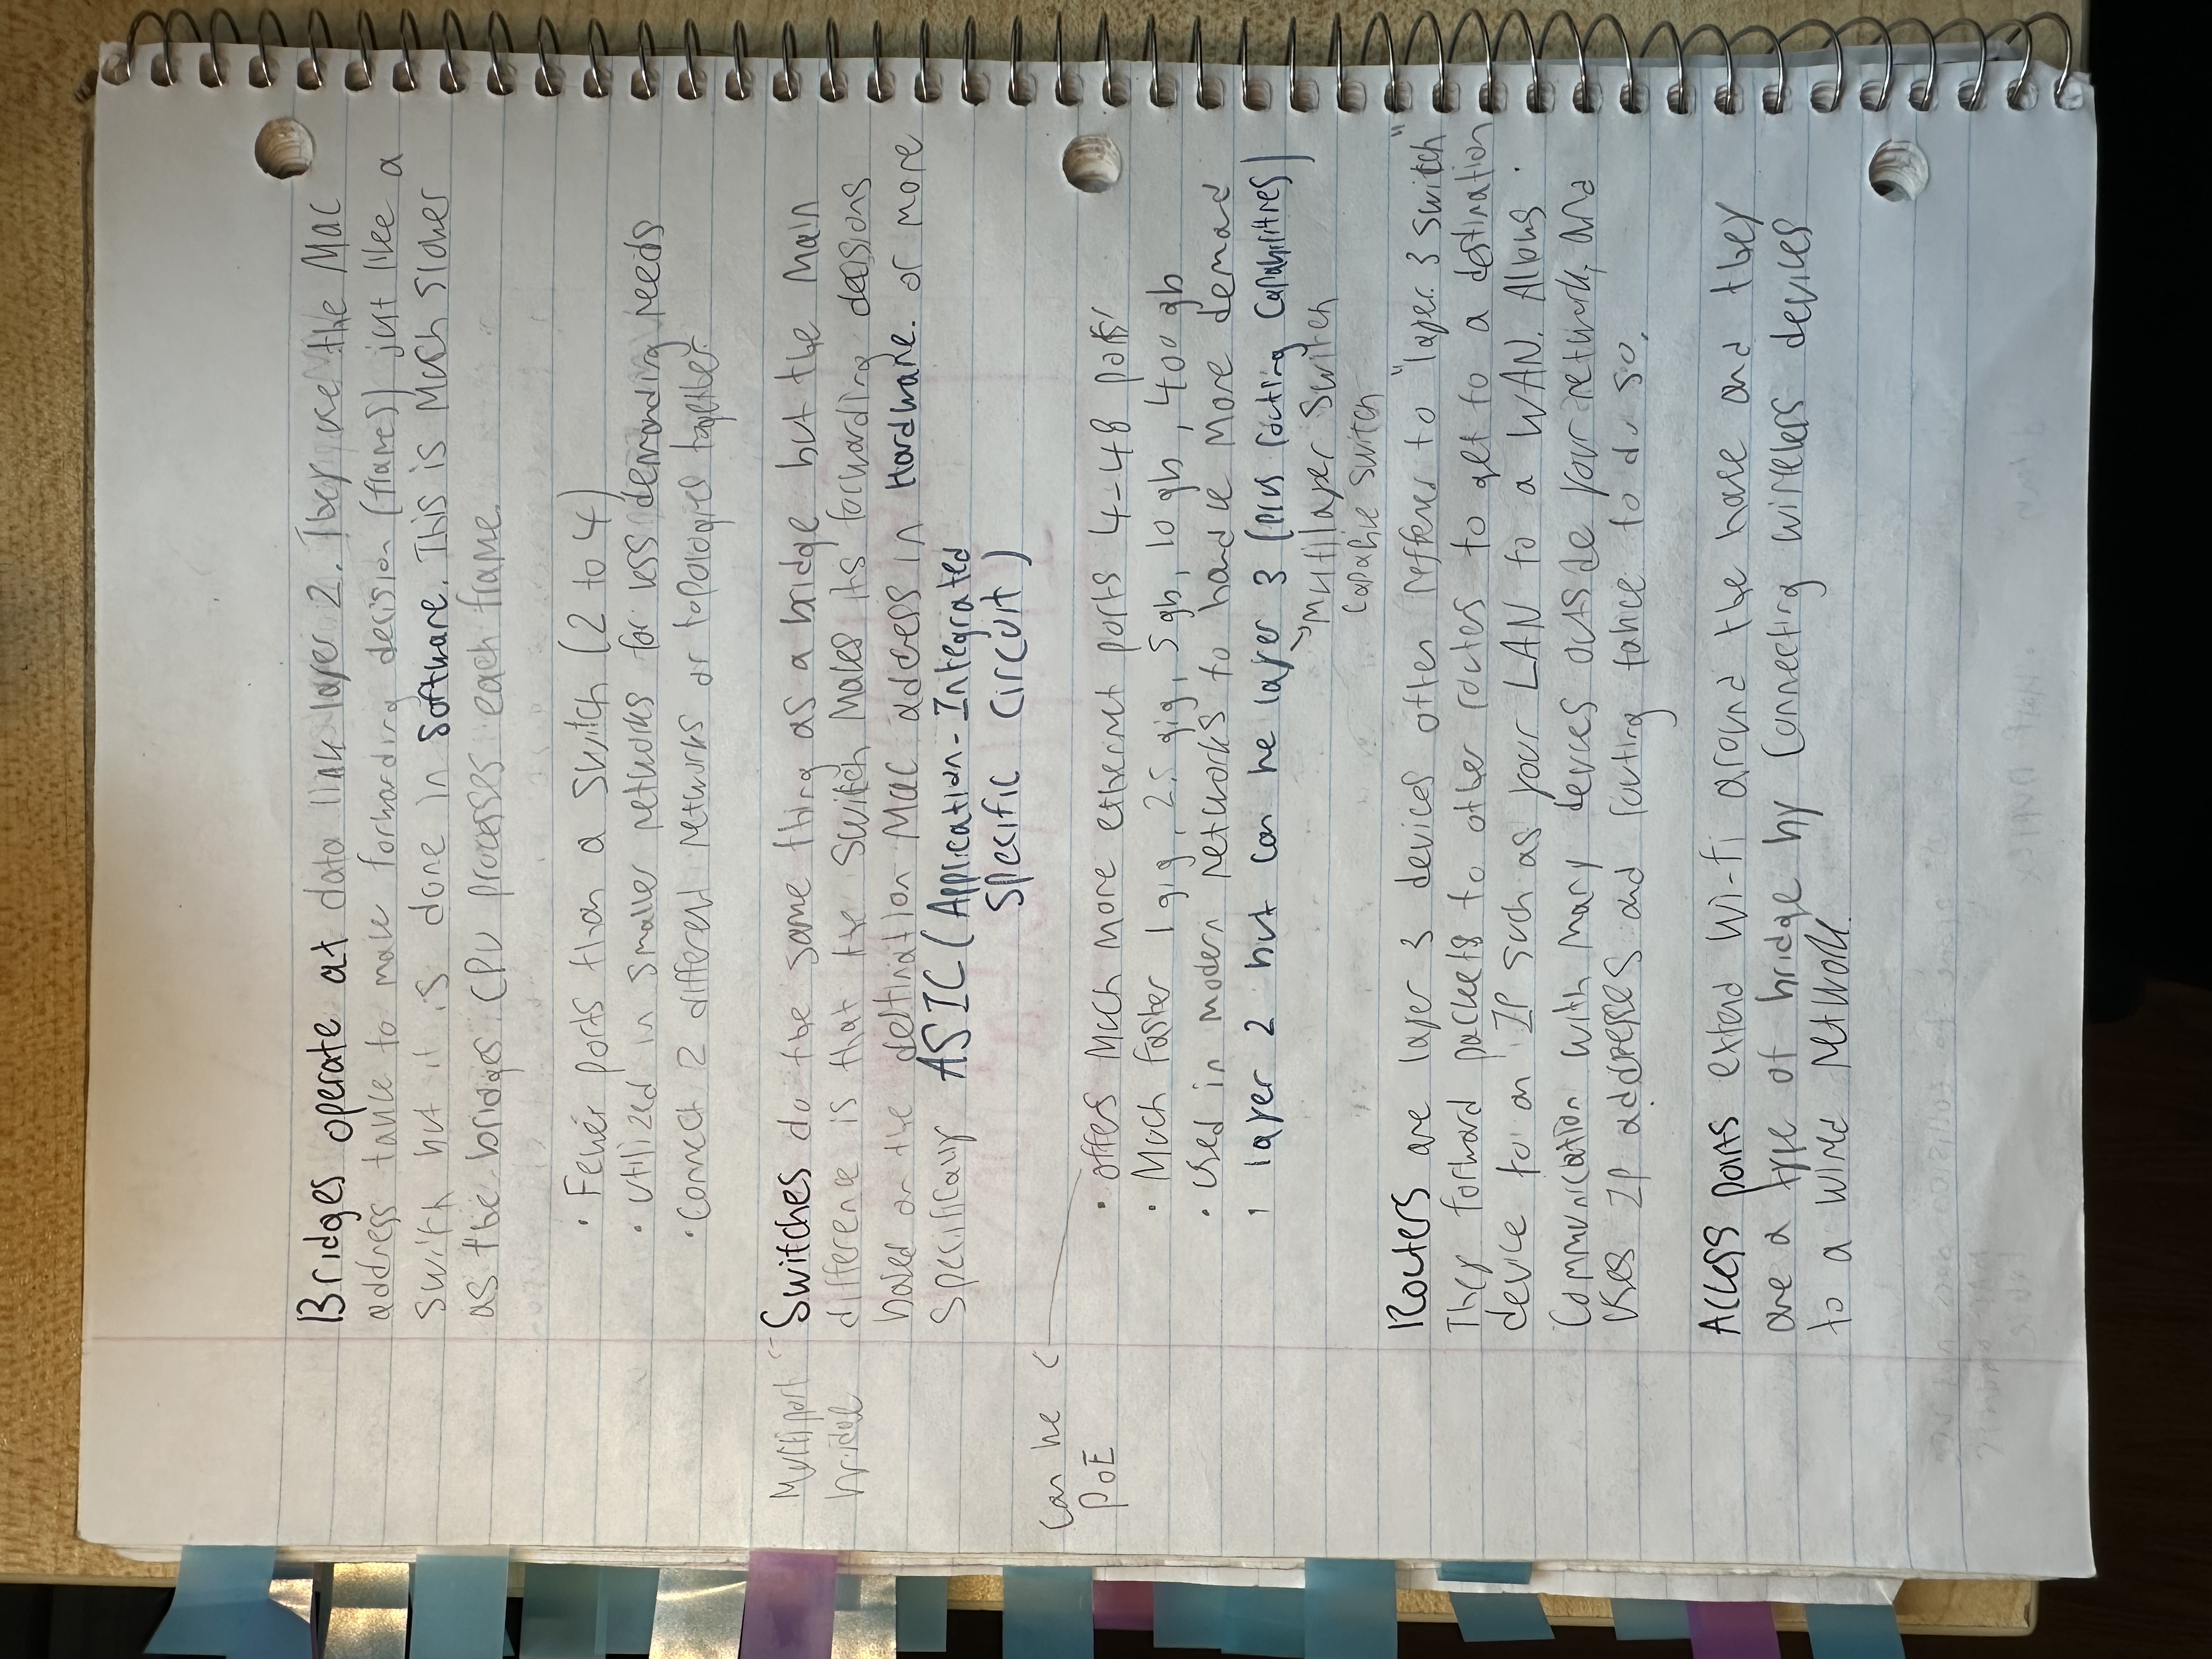 Bridges operate at data link layer 2. They use the Mac
address table to make forwarding decision (frames) just like a
switch but it is done in Software. This is Much slower
as the bridges CPU processes each frame.
· Fewer ports than a switch (2 to 4)
· utilized in smaller networks for less demanding needs
· Connect 2 different networks or topologies together.
Multiport
bridge
Switches do the same thing as a bridge but the main
difference is that the switch makes its forwarding decisions
based on the destination MAC address in Hardware. or more
specifically ASIC (Application-Integrated
Specific Circuit)
Can be
PoE
· offers Much more ethernet ports 4-48 ports
· Much faster 1 gig, 2.5 gig, 5 gb, 10 gb, 400 gb
· Used in modern networks to handle more demad
· layer 2 but can be layer 3 (plus routing capabilities)
Multilayer Switch
Capable switch
Routers are layer 3 devices often reffered to "layer 3 switch"
They forward packets to other routers to get to a destination
device to an IP such as your LAN to a WAN. Allows
Communication with many devices outside your network, and
uses IP addresses and routing table to do so.
Access points extend Wi-fi around the house and they
are a type of bridge by connecting wireless devices
to a wired network.